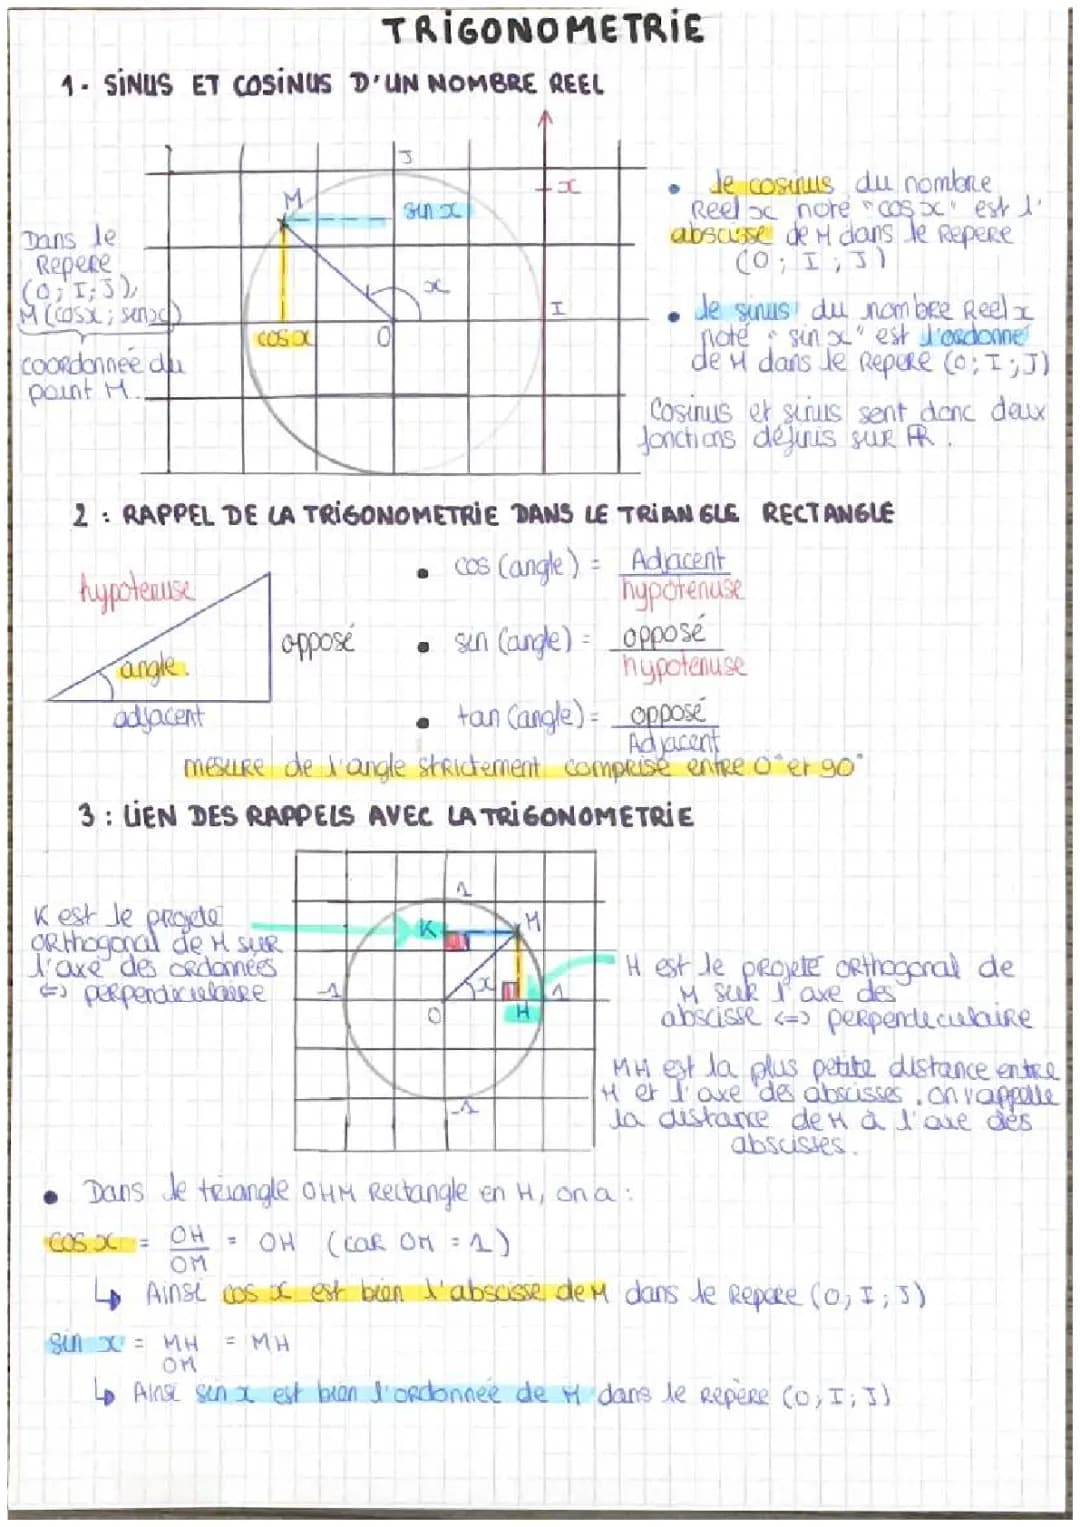 TRIGONOMETRIE
1. SINUS ET COSINUS D'UN NOMBRE REEL
J
x
M
sin x
x
I
cos x
O
Dans le
Repere
(O; I; J),
M (cosx; sinx)
coordonnée du
point M.
• le cosinus du nombre
Reel x noté "cos x" est l'
abscisse de M dans le Repere
(O; I; J)
• le sinus du nombre Reel x
noté "sin x" est l'ordonné
de M dans le Repere (O; I; J)
Cosinus et sinus sont donc deux
fonctions définis sur R.
2 : RAPPEL DE LA TRIGONOMETRIE DANS LE TRIANGLE RECTANGLE
hypotenuse
angle.
opposé
adjacent
• cos (angle) = Adjacent
hypotenuse
• sin (angle) = opposé
hypotenuse
• tan (angle) = opposé
Adjacent
mesure de l'angle strictement comprise entre 0° et 90°
3 : LIEN DES RAPPELS AVEC LA TRIGONOMETRIE
1
K
M
-1
x
1
O
H
-1
K est le projeté
orthogonal de M sur
l'axe des ordonnées
<=> perpendiculaire
H est le projeté orthogonal de
M sur l'axe des
abscisse <=> perpendiculaire
MH est la plus petite distance entre
M et l'axe des abscisses. on l'appelle
la distance de M à l'axe des
abscisses.
• Dans le triangle OHM Rectangle en H, on a :
cos x = OH = OH (car OM = 1)
OM
↳ Ainsi cos x est bien l'abscisse de M dans le Repere (O; I; J)
sin x = MH = MH
OM
↳ Ainsi sin x est bien l'ordonnée de M dans le repère (O; I; J)